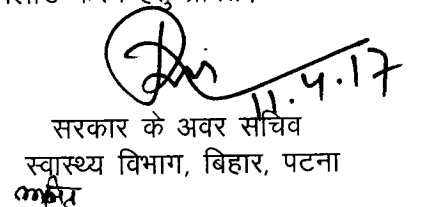 11.4.17
सरकार के अवर सचिव
स्वास्थ्य विभाग, बिहार, पटना